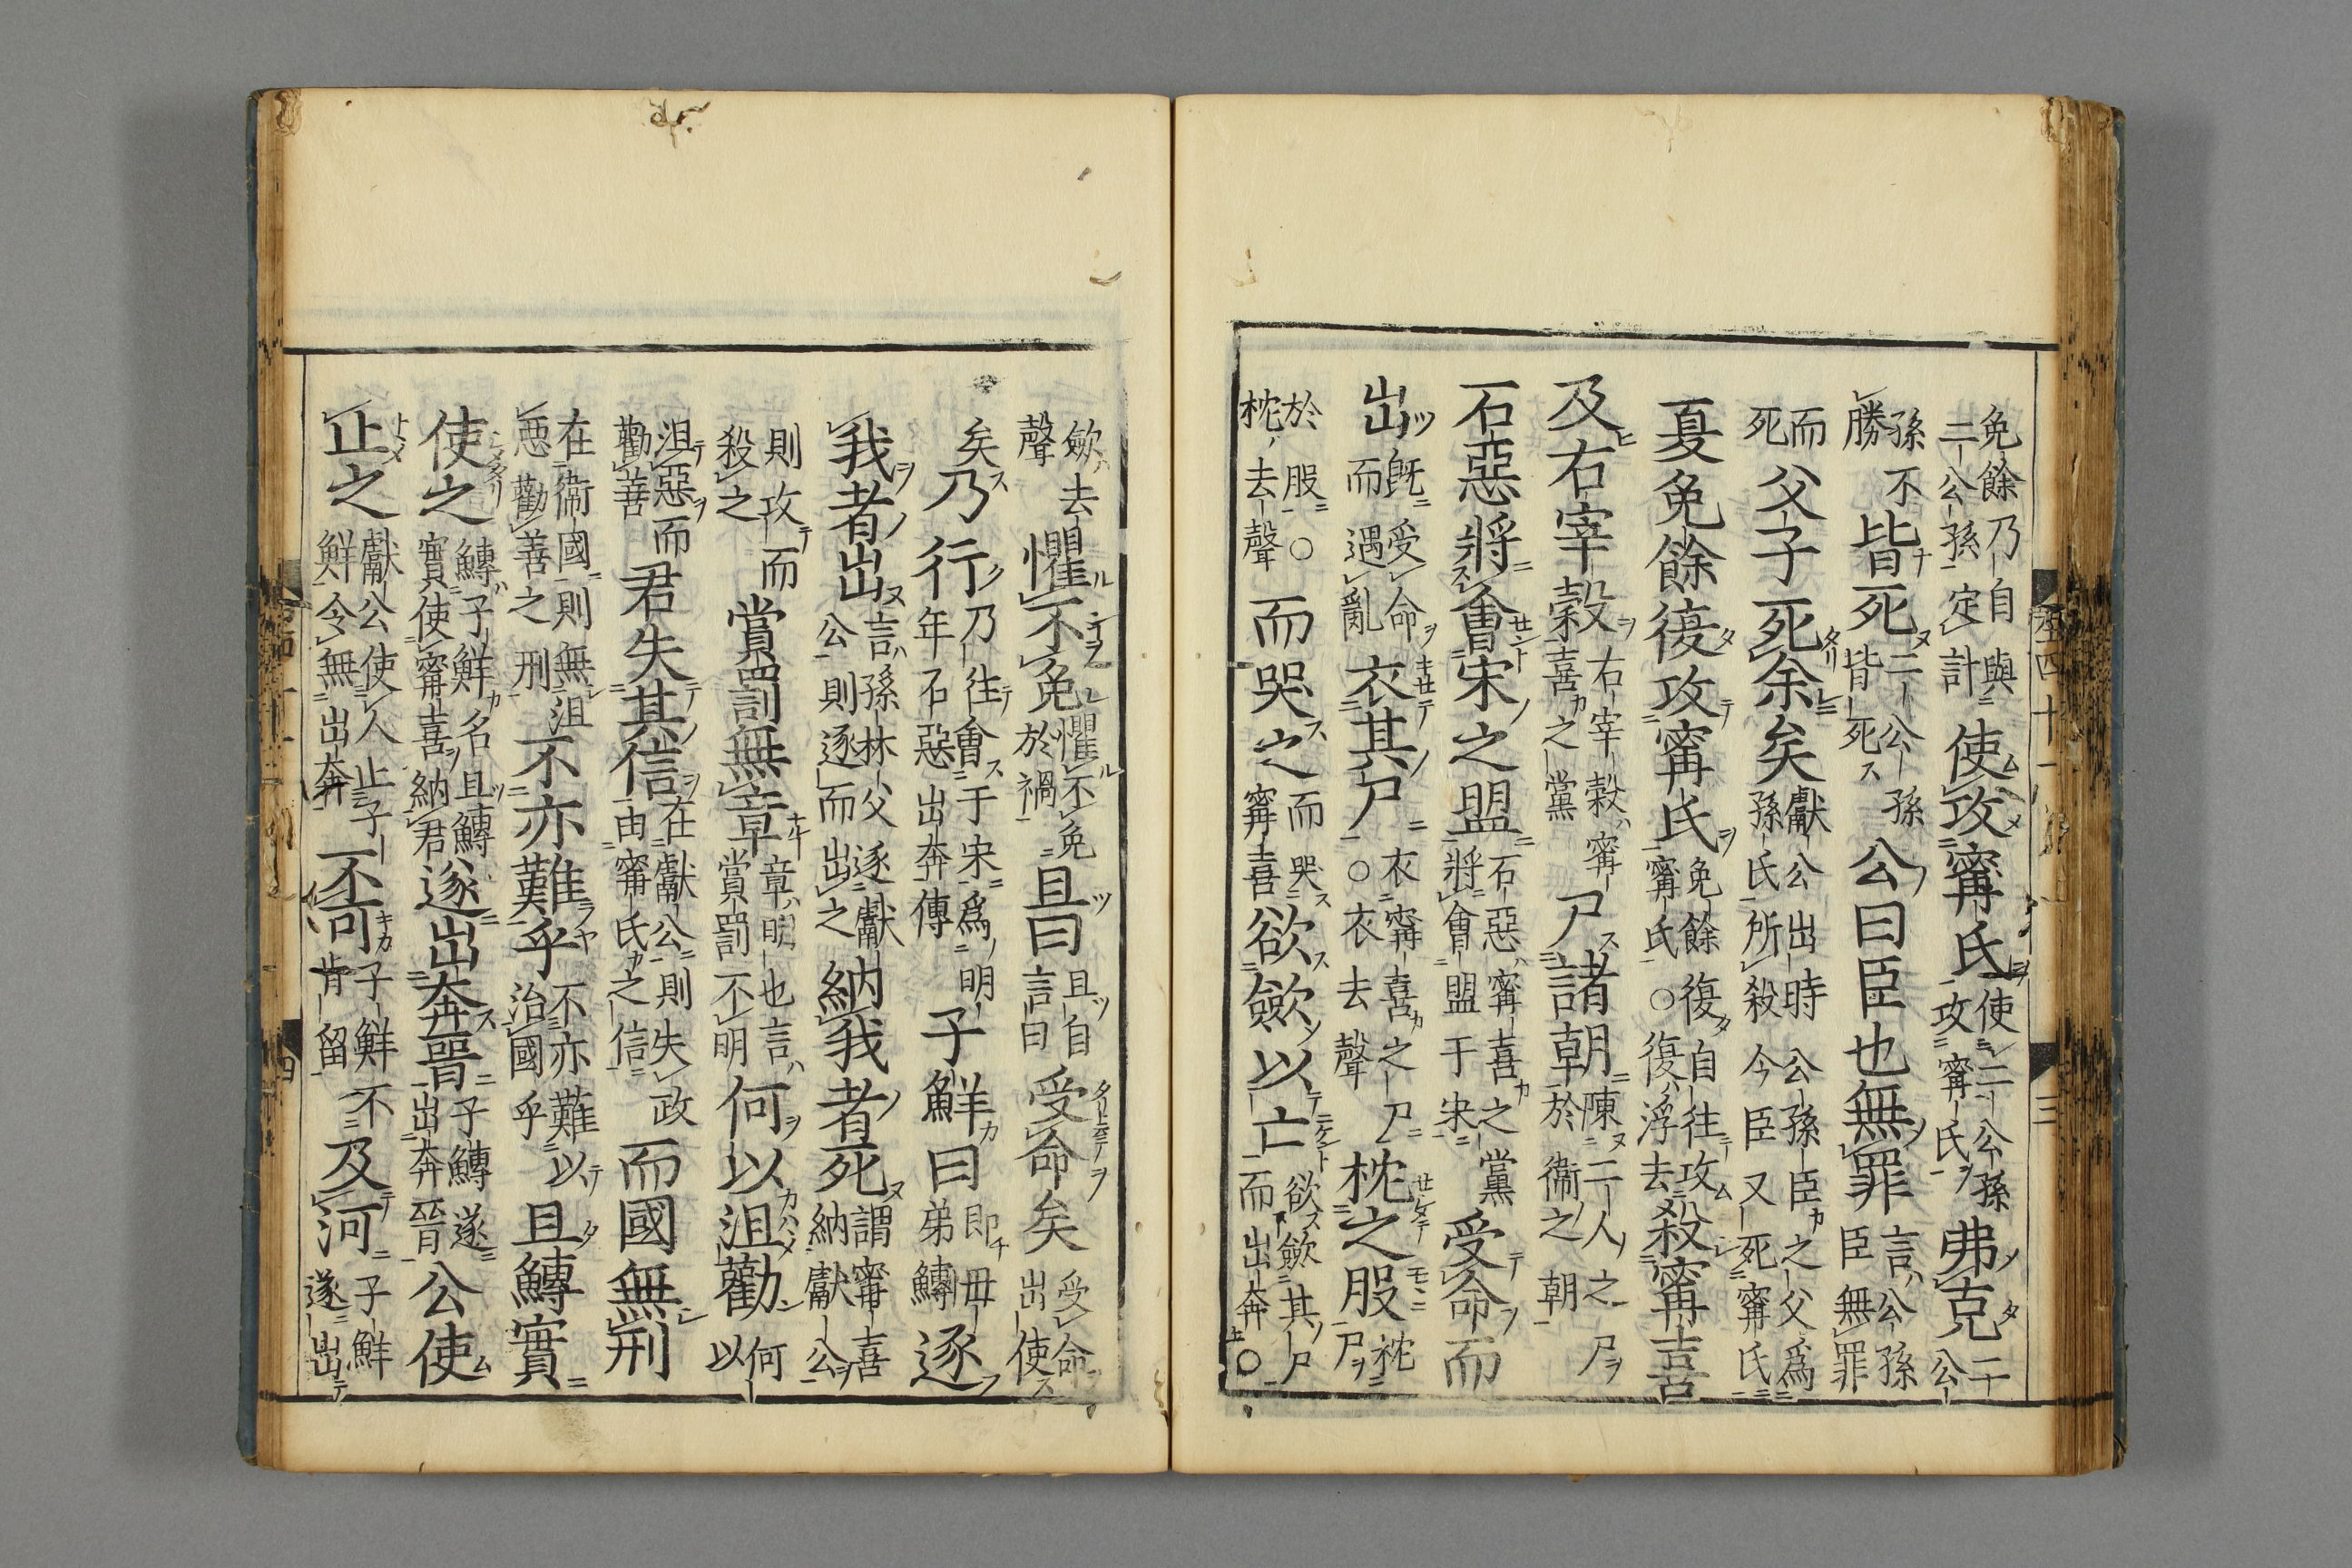 免餘乃自與二公孫定計使攻甯氏使二公孫攻甯氏弗克二公
孫不勝皆死二公孫皆死公曰臣也無罪言公孫臣無罪
而死父子死余矣獻公出時公孫臣之父爲孫氏所殺今臣又死甯氏
夏免餘復攻甯氏免餘復自往攻甯氏○復浮去殺甯喜
及右宰穀右宰穀甯喜之黨尸諸朝陳二人之尸於衞之朝
石惡將會宋之盟石惡甯喜之黨將會盟于宋受命而
出既受命而遇亂衣其尸衣甯喜之尸○衣去聲枕之股枕尸
於股○枕去聲而哭之而哭甯喜欲斂以亡欲斂其尸而出奔○
斂去聲懼不免懼不免於禍且曰且自言曰受命矣受命出使
矣乃行乃往會于宋爲明年石惡出奔傳子鮮曰即母弟鱄逐
我者出言孫林父逐獻公則逐而出之納我者死謂甯喜納獻公
則攻而殺之賞罰無章章明也言賞罰不明何以沮勸何以
沮惡而勸善君失其信在獻公則失政由甯氏之信而國無刑
在衞國則無沮惡勸善之刑不亦難乎不亦難以治國乎且鱄實
使之鱄子鮮名且鱄實使甯喜納君遂出奔晉子鱄遂出奔晉公使
止之獻公使人止子鮮令無出奔不可子鮮不肯留及河子鮮遂出